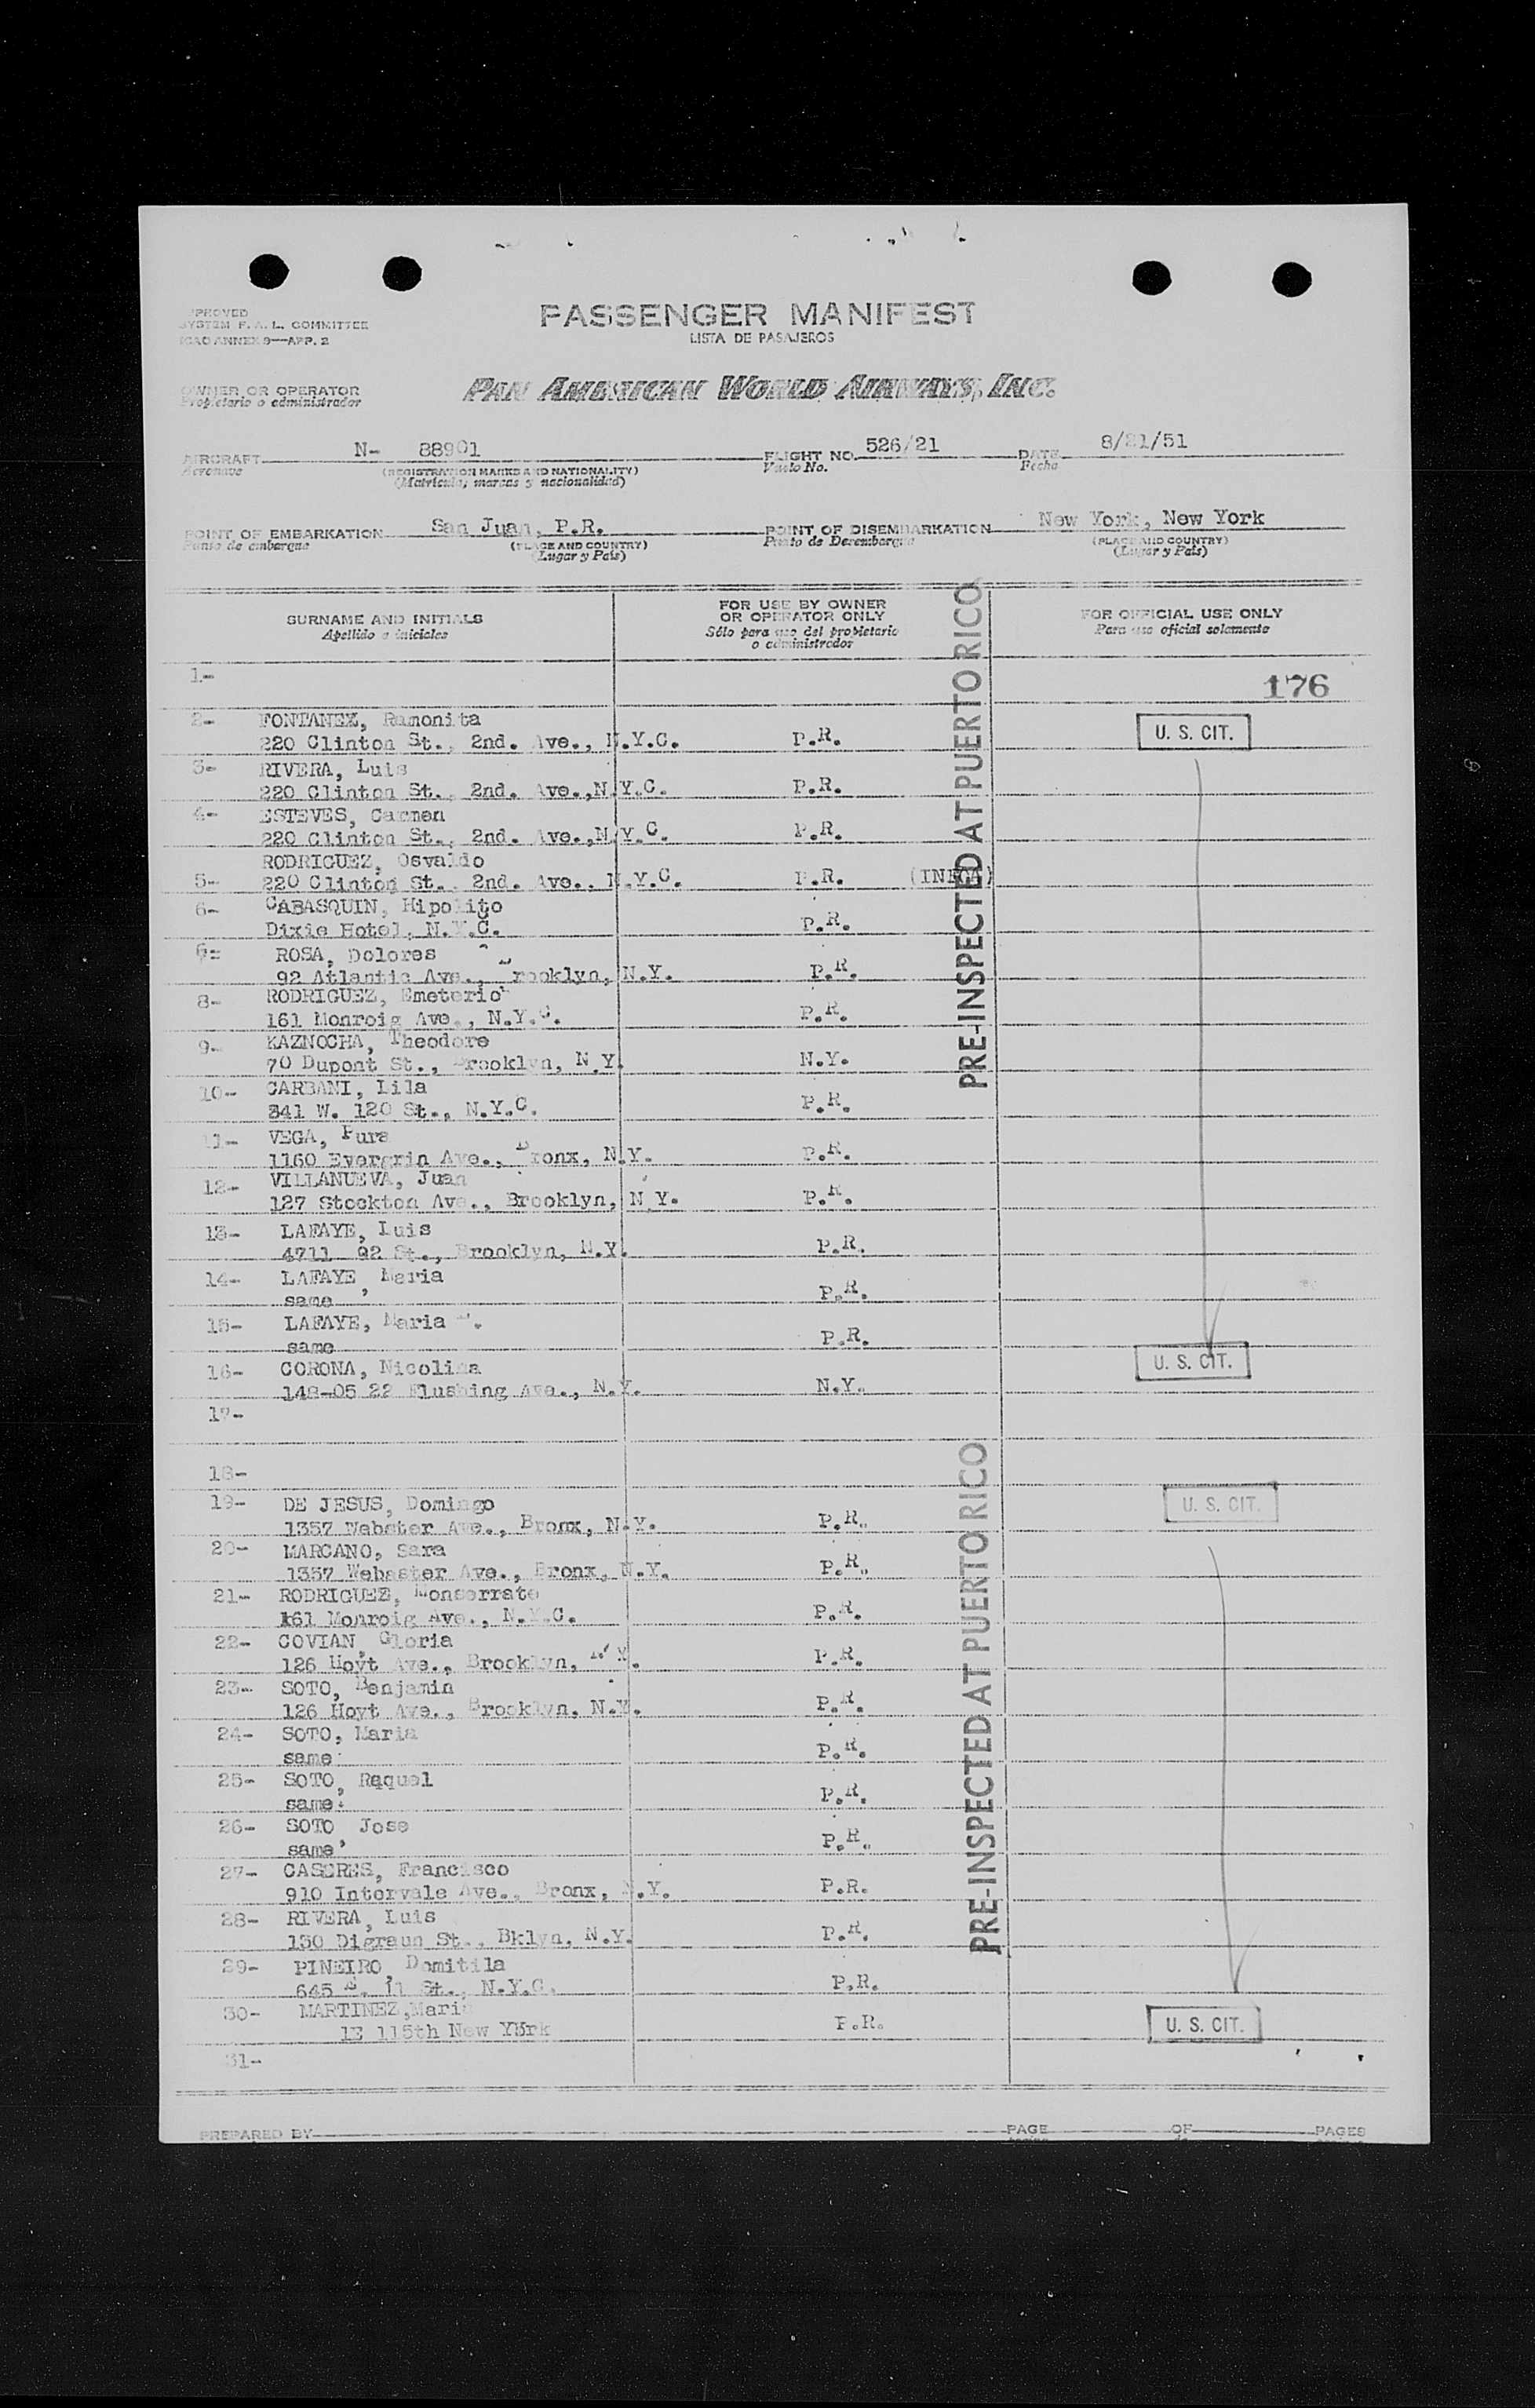 APPROVED
SYSTEM F. A. L. COMMITTEE
ICAO ANNEX 9—APP. 2
PASSENGER MANIFEST
LISTA DE PASAJEROS
OWNER OR OPERATOR
Propietario o administrador
PAN AMERICAN WORLD AIRWAYS, INC.
AIRCRAFT N- 88901 FLIGHT NO. 526/21 DATE 8/21/51
Aeronave (REGISTRATION MARKS AND NATIONALITY) Vuelo No. Fecha
(Matricula, marcas y nacionalidad)
POINT OF EMBARKATION San Juan, P.R. POINT OF DISEMBARKATION New York, New York
Punto de embarque (PLACE AND COUNTRY) Punto de Desembarque (PLACE AND COUNTRY)
(Lugar y País) (Lugar y País)
SURNAME AND INITIALS
Apellido e iniciales
FOR USE BY OWNER
OR OPERATOR ONLY
Sólo para uso del propietario
o administrador
FOR OFFICIAL USE ONLY
Para uso oficial solamente
1.-
176
2- FONTANEZ, Ramonita
220 Clinton St., 2nd. Ave., N.Y.C. P.R. U. S. CIT.
3- RIVERA, Luis
220 Clinton St., 2nd. Ave.,N.Y.C. P.R.
4- ESTEVES, Carmen
220 Clinton St., 2nd. Ave.,N.Y.C. P.R.
RODRIGUEZ, Osvaldo
5- 220 Clinton St., 2nd. Ave., N.Y.C. P.R.
6- CABASQUIN, Hipolito
Dixie Hotel, N.Y.C. P.R.
ROSA, Dolores
92 Atlantic Ave., Brooklyn, N.Y. P.R.
8- RODRIGUEZ, Emeterio
161 Monroig Ave., N.Y.C. P.R.
9- KAZNOCHA, Theodore
70 Dupont St., Brooklyn, N.Y. N.Y.
10- CARBANI, Lila
341 W. 120 St., N.Y.C. P.R.
11- VEGA, Pura
1160 Evergrin Ave., Bronx, N.Y. P.R.
12- VILLANUEVA, Juan
127 Stockton Ave., Brooklyn, N.Y. P.R.
13- LAFAYE, Luis
4711 92 St., Brooklyn, N.Y. P.R.
14- LAFAYE, Maria
same P.R.
15- LAFAYE, Maria
same P.R.
16- CORONA, Nicolina U. S. CIT.
148-05 22 Flushing Ave., N.Y. N.Y.
17-
18-
19- DE JESUS, Domingo U. S. CIT.
1357 Webster Ave., Bronx, N.Y. P.R.
20- MARCANO, Sara
1357 Webster Ave., Bronx, N.Y. P.R.
21- RODRIGUEZ, Monserrate
161 Monroig Ave., N.Y.C. P.R.
22- COVIAN, Gloria
126 Hoyt Ave., Brooklyn, N.Y. P.R.
23- SOTO, Benjamin
126 Hoyt Ave., Brooklyn, N.Y. P.R.
24- SOTO, Maria
same P.R.
25- SOTO, Raquel
same P.R.
26- SOTO, Jose
same P.R.
27- CASERES, Francisco
910 Intervale Ave., Bronx, N.Y. P.R.
28- RIVERA, Luis
150 Digraun St., Bklyn, N.Y. P.R.
29- PINEIRO, Domitila
645 E. 11 St., N.Y.C. P.R.
30- MARTINEZ,Maria
1E 115th New York P.R. U. S. CIT.
31-
PRE-INSPECTED AT PUERTO RICO
PRE-INSPECTED AT PUERTO RICO
PREPARED BY PAGE OF PAGES